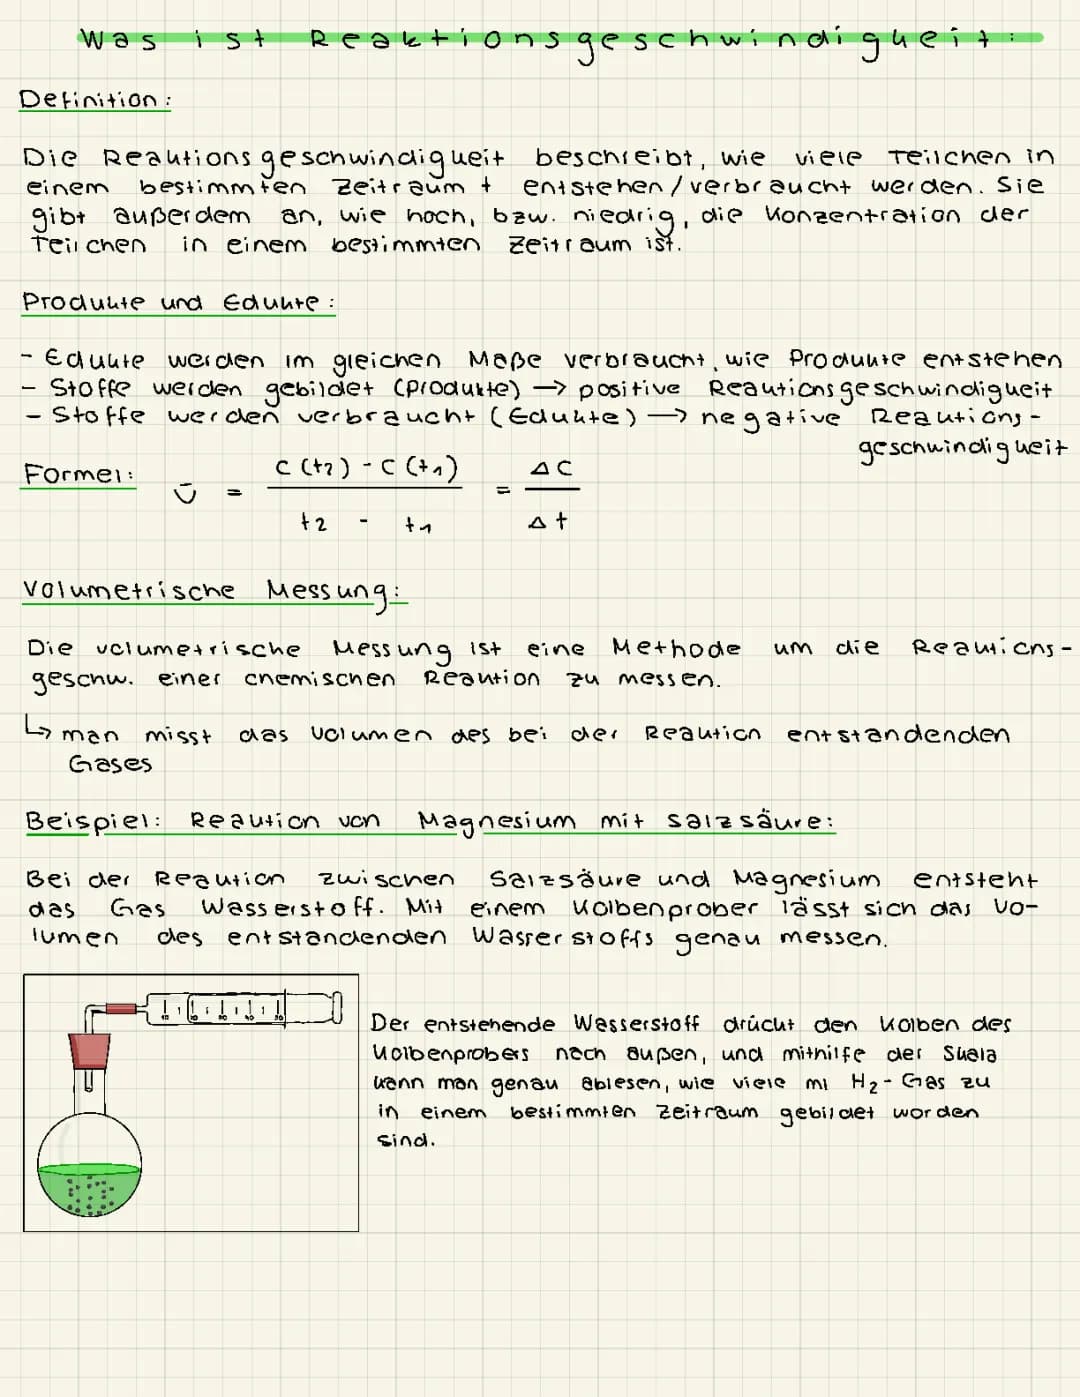 Was ist Reaktionsgeschwindigkeit:
Definition:
Die Reaktionsgeschwindigkeit beschreibt, wie viele Teilchen in
einem bestimmten Zeitraum t entstehen/verbraucht werden. Sie
gibt außerdem an, wie hoch, bzw. niedrig, die Konzentration der
Teilchen in einem bestimmten Zeitraum ist.
Produkte und Edukte:
- Edukte werden im gleichen Maße verbraucht, wie Produkte entstehen
- Stoffe werden gebildet (Produkte) → positive Reaktionsgeschwindigkeit
- Stoffe werden verbraucht (Edukte) → negative Reaktions-
geschwindigkeit
Formel: ῡ = c(t₂) - c(t₁) / t₂ - t₁ = Δc / Δt
Volumetrische Messung:
Die volumetrische Messung ist eine Methode um die Reaktions-
geschw. einer chemischen Reaktion zu messen.
↳ man misst das Volumen des bei der Reaktion entstandenden
Gases
Beispiel: Reaktion von Magnesium mit Salzsäure:
Bei der Reaktion zwischen Salzsäure und Magnesium entsteht
das Gas Wasserstoff. Mit einem Kolbenprober lässt sich das Vo-
lumen des entstandenden Wasserstoffs genau messen.
Der entstehende Wasserstoff drückt den Kolben des
Kolbenprobers nach außen, und mithilfe der Skala
kann man genau ablesen, wie viele ml H₂-Gas zu
in einem bestimmten Zeitraum gebildet worden
sind.